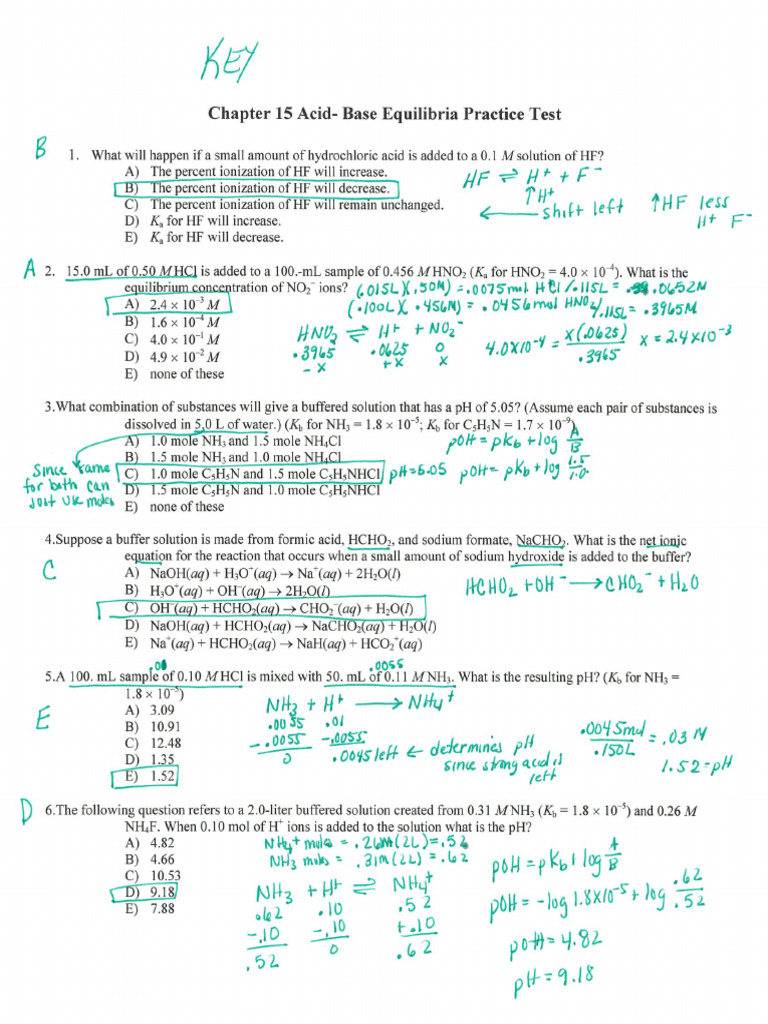 KEY
Chapter 15 Acid- Base Equilibria Practice Test
B 1. What will happen if a small amount of hydrochloric acid is added to a 0.1 M solution of HF?
A) The percent ionization of HF will increase.
B) The percent ionization of HF will decrease.
C) The percent ionization of HF will remain unchanged.
D) Kₐ for HF will increase.
E) Kₐ for HF will decrease.
HF ⇌ H⁺ + F⁻
↑H⁺
← shift left ↑HF less
H⁺ F⁻
A 2. 15.0 mL of 0.50 M HCl is added to a 100.-mL sample of 0.456 M HNO₂ (Kₐ for HNO₂ = 4.0 × 10⁻⁴). What is the
equilibrium concentration of NO₂⁻ ions?
(.015L)(.50M) = .0075mol HCl/.115L = .0652M
(.100L)(.456M) = .0456mol HNO₂/.115L = .3965M
A) 2.4 × 10⁻³ M
B) 1.6 × 10⁻⁴ M
C) 4.0 × 10⁻¹ M
D) 4.9 × 10⁻² M
E) none of these
HNO₂ ⇌ H⁺ + NO₂⁻
.3965 .0625 0
-x +x x
4.0x10⁻⁴ = x(.0625)/.3965 x = 2.4x10⁻³
3.What combination of substances will give a buffered solution that has a pH of 5.05? (Assume each pair of substances is
dissolved in 5.0 L of water.) (Kb for NH₃ = 1.8 × 10⁻⁵; Kb for C₅H₅N = 1.7 × 10⁻⁹)
A) 1.0 mole NH₃ and 1.5 mole NH₄Cl
B) 1.5 mole NH₃ and 1.0 mole NH₄Cl
C) 1.0 mole C₅H₅N and 1.5 mole C₅H₅NHCl
D) 1.5 mole C₅H₅N and 1.0 mole C₅H₅NHCl
E) none of these
Since same
for both can
just use moles
pOH = pKb + log A/B
pH=5.05 pOH = pKb + log 1.5/1.0
4.Suppose a buffer solution is made from formic acid, HCHO₂, and sodium formate, NaCHO₂. What is the net ionic
equation for the reaction that occurs when a small amount of sodium hydroxide is added to the buffer?
C
A) NaOH(aq) + H₃O⁺(aq) → Na⁺(aq) + 2H₂O(l)
B) H₃O⁺(aq) + OH⁻(aq) → 2H₂O(l)
C) OH⁻(aq) + HCHO₂(aq) → CHO₂⁻(aq) + H₂O(l)
D) NaOH(aq) + HCHO₂(aq) → NaCHO₂(aq) + H₂O(l)
E) Na⁺(aq) + HCHO₂(aq) → NaH(aq) + HCO₂⁺(aq)
HCHO₂ + OH⁻ → CHO₂⁻ + H₂O
.0055
5.A 100. mL sample of 0.10 M HCl is mixed with 50. mL of 0.11 M NH₃. What is the resulting pH? (Kb for NH₃ =
1.8 × 10⁻⁵)
E
A) 3.09
B) 10.91
C) 12.48
D) 1.35
E) 1.52
NH₃ + H⁺ → NH₄⁺
.0055 .01
-.0055 -.0055
0 .0045 left ← determines pH
since strong acid is
left
.0045mol/.150L = .03 M
1.52=pH
D 6.The following question refers to a 2.0-liter buffered solution created from 0.31 M NH₃ (Kb = 1.8 × 10⁻⁵) and 0.26 M
NH₄F. When 0.10 mol of H⁺ ions is added to the solution what is the pH?
A) 4.82
B) 4.66
C) 10.53
D) 9.18
E) 7.88
NH₄⁺ moles = .26M(2L)=.52
NH₃ moles = .31M(2L)=.62
NH₃ + H⁺ ⇌ NH₄⁺
.62 .10 .52
-.10 -.10 +.10
.52 0 .62
pOH = pKb + log A/B
pOH = -log 1.8x10⁻⁵ + log .62/.52
pOH = 4.82
pH = 9.18